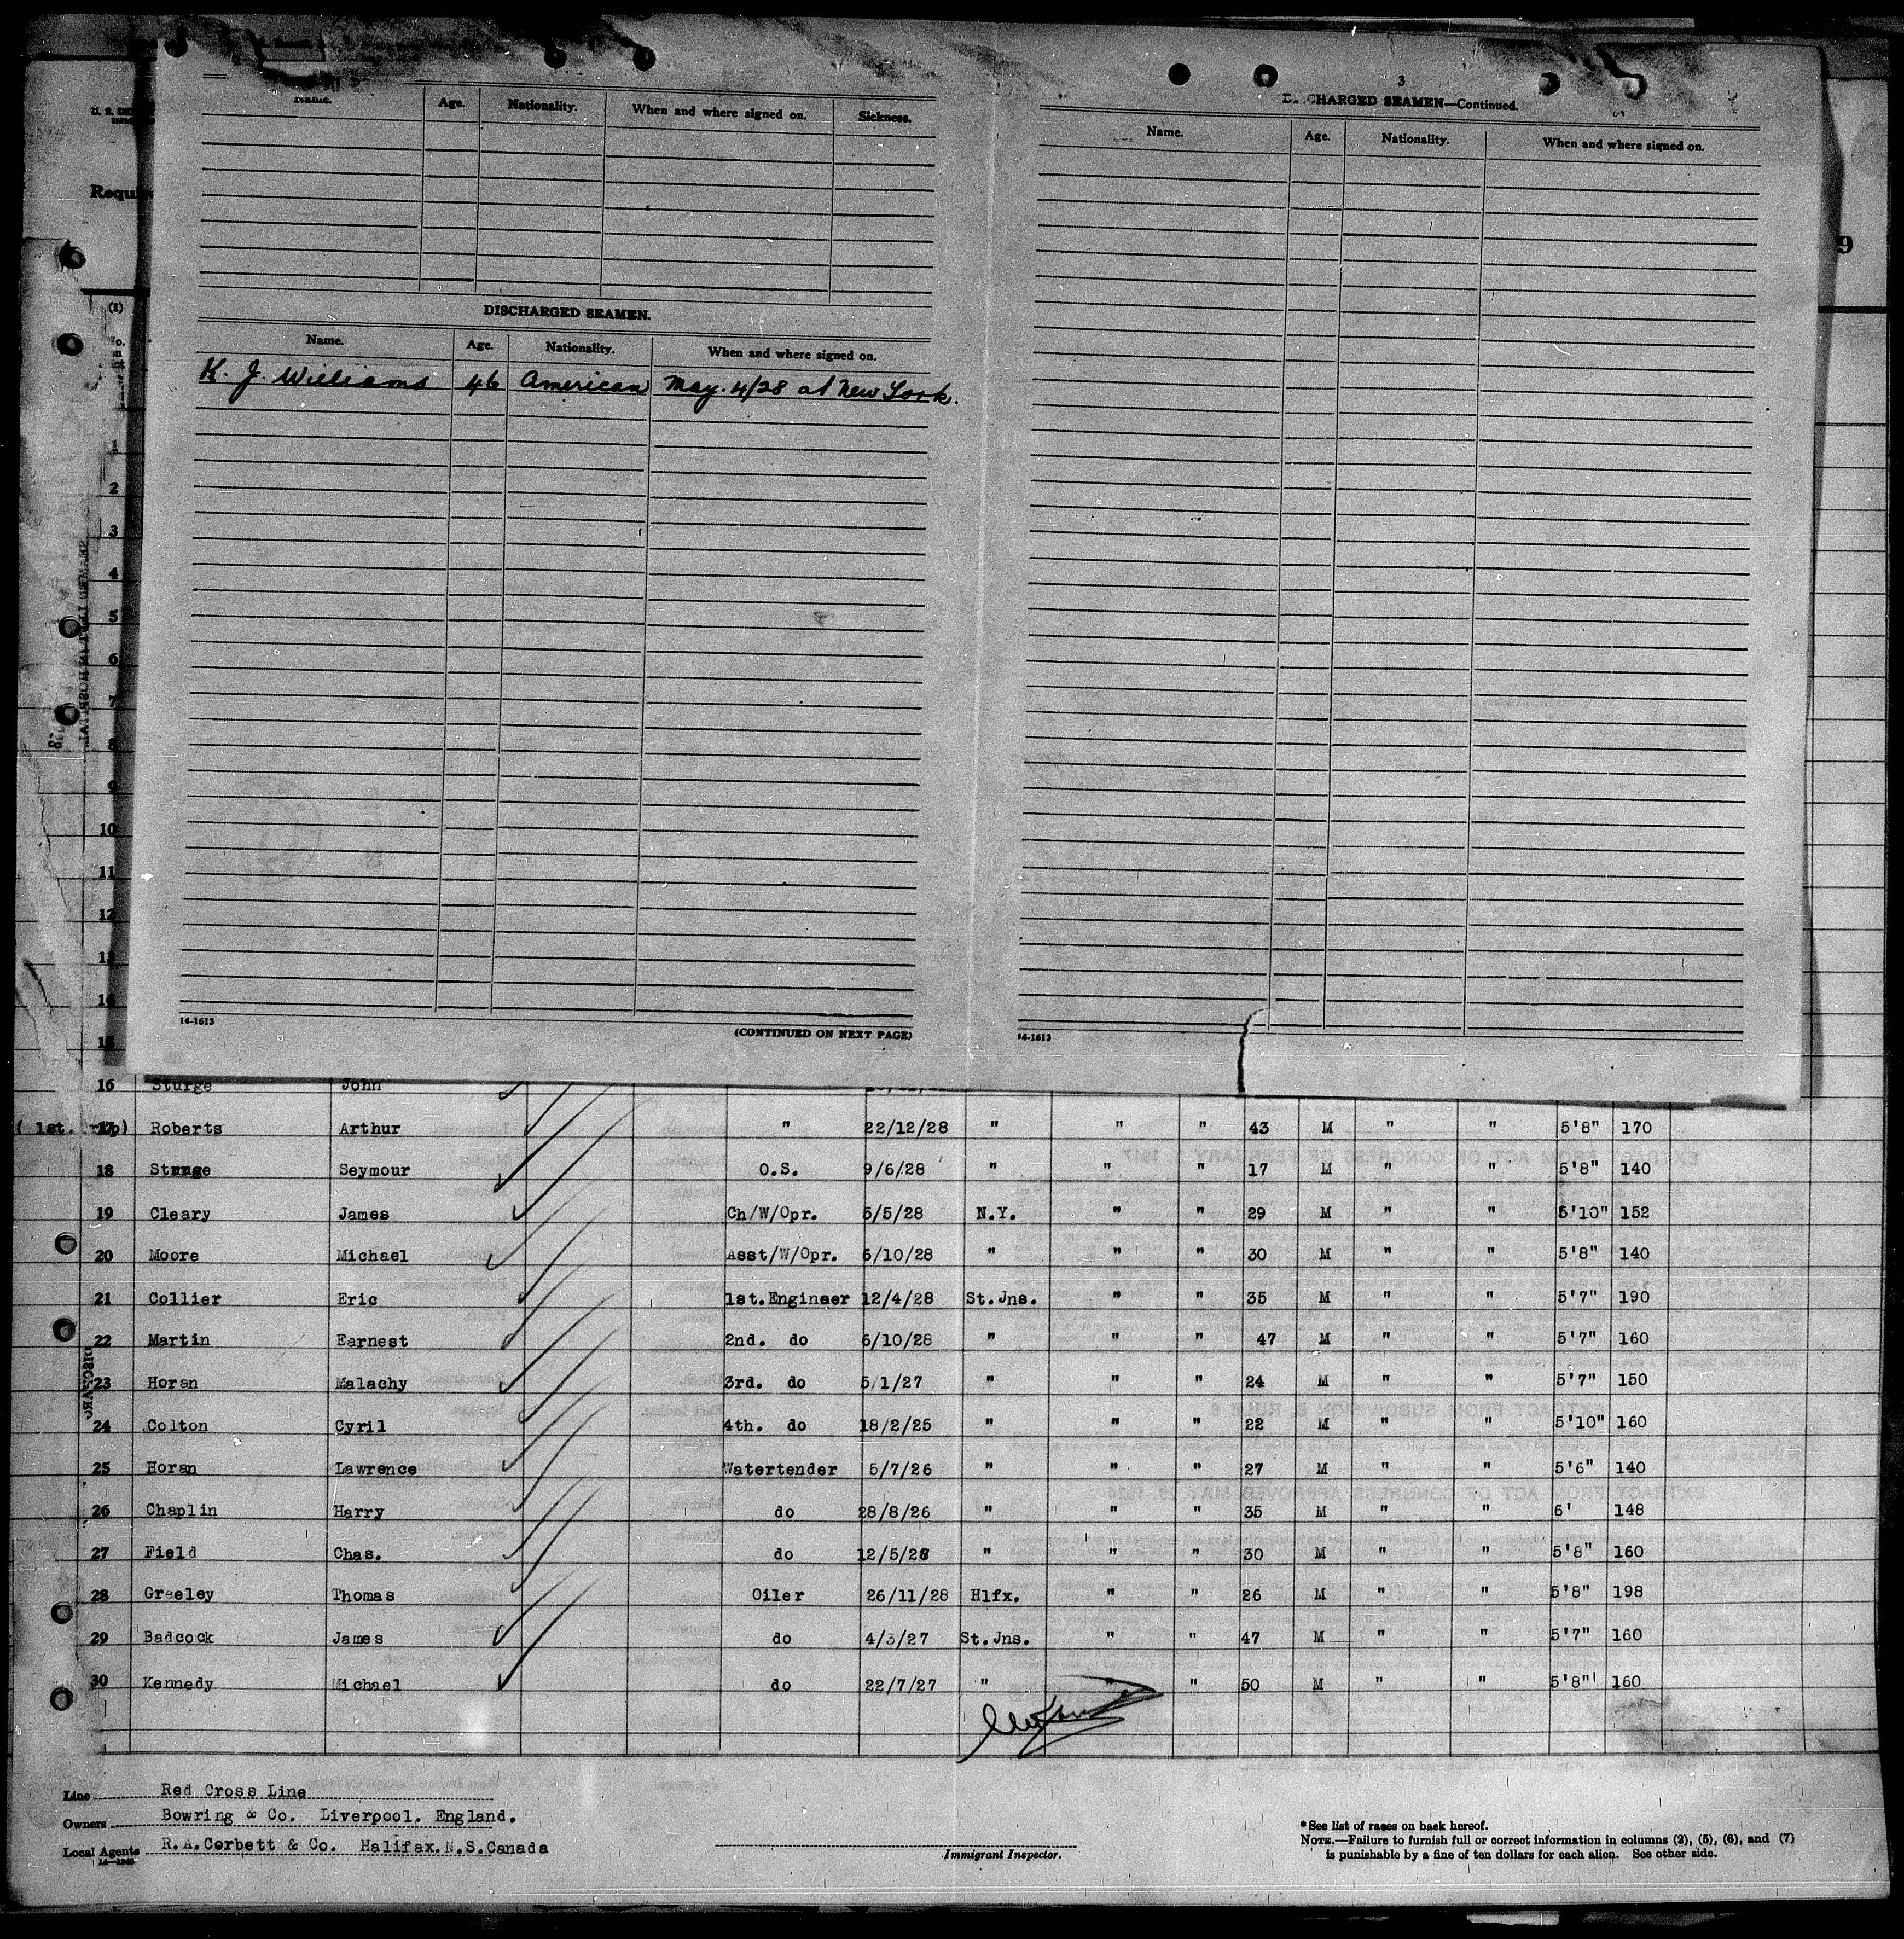 U. S. DE
Requi
9
(1)
Name. Age. Nationality. When and where signed on. Sickness.
DISCHARGED SEAMEN.
Name. Age. Nationality. When and where signed on.
K. J. Williams 46 American May. 4/28 at New York.
14-1613 (CONTINUED ON NEXT PAGE)
3
DISCHARGED SEAMEN—Continued.
Name. Age. Nationality. When and where signed on.
14-1613
1
2
3
4
5
6
7
8
9
10
11
12
13
14
15
16 Sturge John
( 1st. trip) 17 Roberts Arthur " 22/12/28 " " " 43 M " " 5'8" 170
18 Sturge Seymour O.S. 9/6/28 " " " 17 M " " 5'8" 140
19 Cleary James Ch/W/Opr. 5/5/28 N.Y. " " 29 M " " 5'10" 152
20 Moore Michael Asst/W/Opr. 6/10/28 " " " 30 M " " 5'8" 140
21 Collier Eric 1st.Engineer 12/4/28 St.Jns. " " 35 M " " 5'7" 190
22 Martin Earnest 2nd. do 6/10/28 " " " 47 M " " 5'7" 160
23 Horan Malachy 3rd. do 5/1/27 " " " 24 M " " 5'7" 150
24 Colton Cyril 4th. do 18/2/25 " " " 22 M " " 5'10" 160
25 Horan Lawrence Watertender 5/7/26 " " " 27 M " " 5'6" 140
26 Chaplin Harry do 28/8/26 " " " 35 M " " 6' 148
27 Field Chas. do 12/5/28 " " " 30 M " " 5'8" 160
28 Greeley Thomas Oiler 26/11/28 Hlfx. " " 26 M " " 5'8" 198
29 Badcock James do 4/3/27 St.Jns. " " 47 M " " 5'7" 160
30 Kennedy Michael do 22/7/27 " " " 50 M " " 5'8" 160
Line Red Cross Line
Owners Bowring & Co. Liverpool. England.
Local Agents R.A.Corbett & Co. Halifax.N.S.Canada
14-1240
Immigrant Inspector.
*See list of races on back hereof.
NOTE.—Failure to furnish full or correct information in columns (2), (5), (6), and (7)
is punishable by a fine of ten dollars for each alien. See other side.